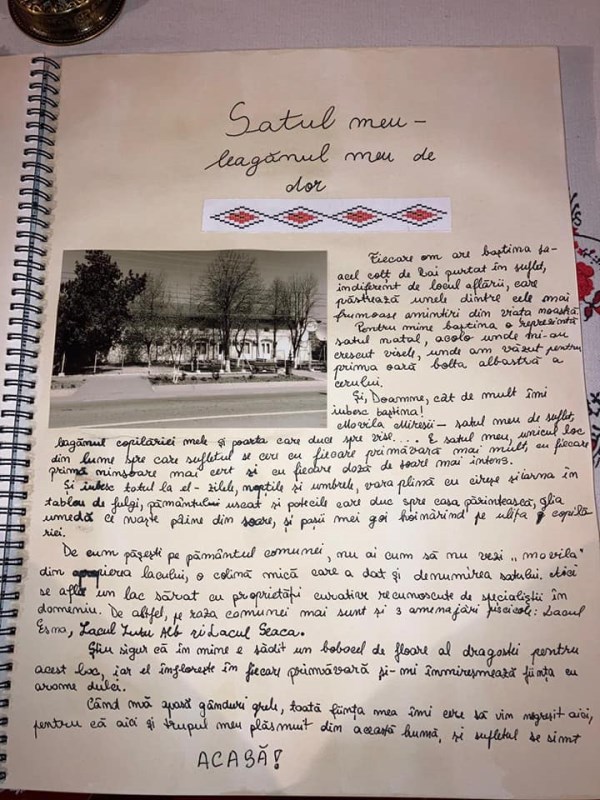 Satul meu –
leagănul meu de
dor
Fiecare om are baștina sa–
acel colț de Rai purtat în suflet,
indiferent de locul aflării, care
păstrează unele dintre cele mai
frumoase amintiri din viața noastră.
Pentru mine baștina o reprezintă
satul natal, acolo unde mi-au
crescut visele, unde am văzut pentru
prima oară bolta albastră a
cerului.
Și, Doamne, cât de mult îmi
iubesc baștina!
Movila Miresii – satul meu de suflet,
leagănul copilăriei mele și poarta care duce spre vise.... E satul meu, unicul loc
din lume spre care sufletul se cere cu fiecare primăvară mai mult, cu fiecare
primă ninsoare mai cert și cu fiecare doză de soare mai intens.
Și iubesc totul la el – zilele, nopțile și umbrele, vara plină cu cireșe și iarna în
tablou de fulgi, pământului uscat și potecile care duc spre casa părintească, glia
umedă ce naște pâine din soare, și pașii mei goi hoinărind pe ulița copilă
riei.
De cum pășești pe pământul comunei, nu ai cum să nu vezi „movila"
din apropierea lacului, o colină mică care a dat și denumirea satului. Aici
se află un lac sărat cu proprietăți curative recunoscute de specialiștii în
domeniu. De altfel, pe raza comunei mai sunt și 3 amenajări piscicole: Lacul
Esna, Lacul Lutu Alb și Lacul Seaca.
Știu sigur că în mine e sădit un boboc de floare al dragostei pentru
acest loc, iar el înflorește în fiecare primăvară și-mi înmiresmează ființa cu
arome dulci.
Când mă apasă gânduri grele, toată ființa mea îmi cere să vin negreșit aici,
pentru că aici și trupul meu plăsmuit din această humă, și sufletul se simt
ACASĂ!